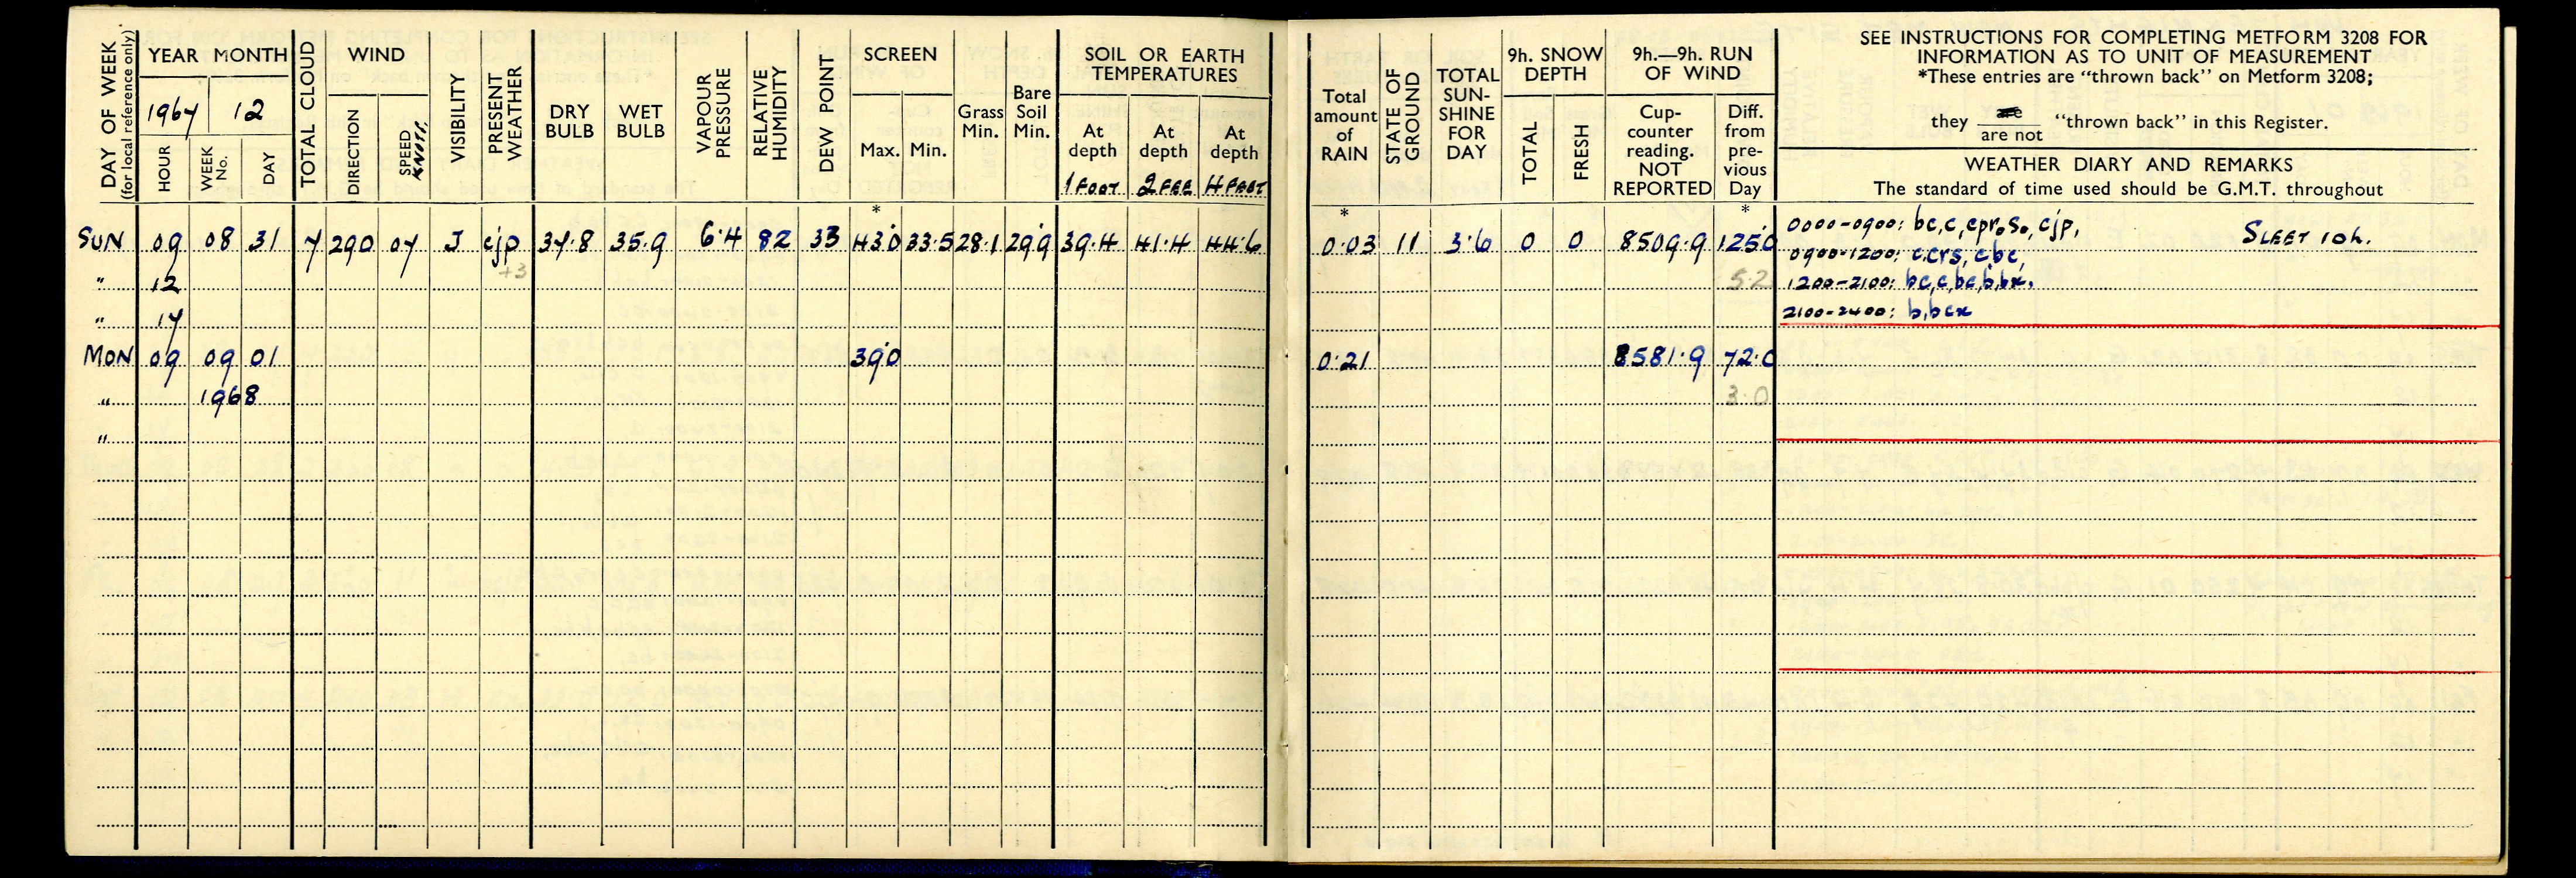 DAY OF WEEK (for local reference only)
YEAR MONTH
1967 12
HOUR WEEK No. DAY
TOTAL CLOUD
WIND
DIRECTION SPEED KNOTS
VISIBILITY
PRESENT WEATHER
DRY BULB
WET BULB
VAPOUR PRESSURE
RELATIVE HUMIDITY
DEW POINT
SCREEN
Max. Min.
Grass Min.
Bare Soil Min.
SOIL OR EARTH TEMPERATURES
At depth 1 FOOT
At depth 2 FEE
At depth 4 FEET
Total amount of RAIN
STATE OF GROUND
TOTAL SUN-SHINE FOR DAY
9h. SNOW DEPTH
TOTAL FRESH
9h.—9h. RUN OF WIND
Cup-counter reading. NOT REPORTED
Diff. from pre-vious Day
SEE INSTRUCTIONS FOR COMPLETING METFORM 3208 FOR
INFORMATION AS TO UNIT OF MEASUREMENT
*These entries are "thrown back" on Metform 3208;
they are / are not "thrown back" in this Register.
WEATHER DIARY AND REMARKS
The standard of time used should be G.M.T. throughout
* * *
SUN 09 08 31 7 290 07 J cjp 37.8 35.9 6.4 82 33 43.0 33.5 28.1 29.9 39.4 41.4 44.6 0.03 11 3.6 0 0 8509.9 125.0
+3
0000-0900: bc,c,cproso,cjp, SLEET 10h.
0900-1200: c,crs,cbc,
" 12 5.2 1200-2100: bc,c,bc,b,bx,
" 17 2100-2400: b,bcx
MON 09 09 01 39.0 0.21 8581.9 72.0
" 1968 3.0
"